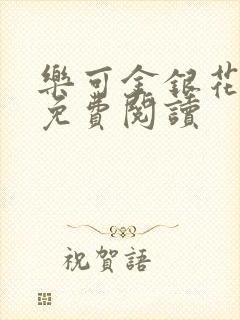 樂可金銀花
免費閱讀
祝賀語